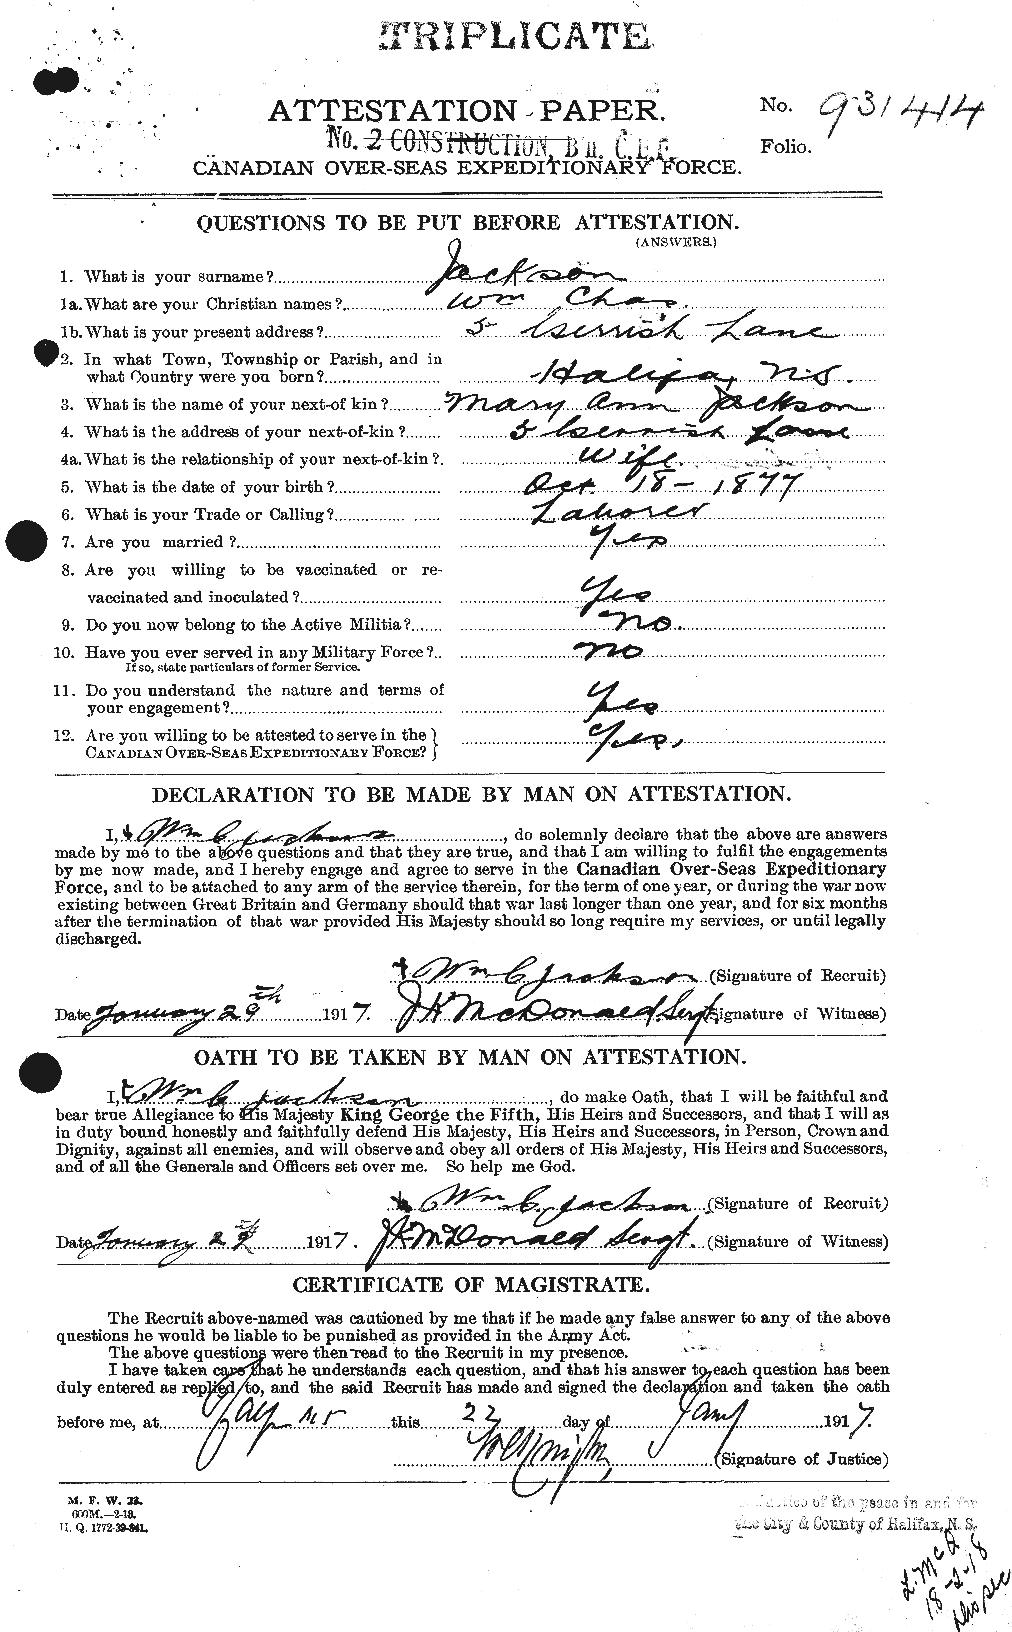 TRIPLICATE
ATTESTATION PAPER.
No. 931414
No. 2 CONSTRUCTION, Bn. C.E.F.
Folio.
CANADIAN OVER-SEAS EXPEDITIONARY FORCE.
QUESTIONS TO BE PUT BEFORE ATTESTATION.
(ANSWERS.)
1. What is your surname? Jackson
1a. What are your Christian names? Wm Chas.
1b. What is your present address? 5 Gerrish Lane
2. In what Town, Township or Parish, and in
what Country were you born? Halifax, N.S.
3. What is the name of your next-of kin? Mary Ann Jackson
4. What is the address of your next-of-kin? 5 Gerrish Lane
4a. What is the relationship of your next-of-kin? Wife.
5. What is the date of your birth? Oct. 18 - 1877
6. What is your Trade or Calling? Laborer
7. Are you married? Yes
8. Are you willing to be vaccinated or re-
vaccinated and inoculated? Yes
9. Do you now belong to the Active Militia? No.
10. Have you ever served in any Military Force? No
If so, state particulars of former Service.
11. Do you understand the nature and terms of
your engagement? Yes
12. Are you willing to be attested to serve in the
CANADIAN OVER-SEAS EXPEDITIONARY FORCE? Yes.
DECLARATION TO BE MADE BY MAN ON ATTESTATION.
I, Wm C Jackson, do solemnly declare that the above are answers
made by me to the above questions and that they are true, and that I am willing to fulfil the engagements
by me now made, and I hereby engage and agree to serve in the Canadian Over-Seas Expeditionary
Force, and to be attached to any arm of the service therein, for the term of one year, or during the war now
existing between Great Britain and Germany should that war last longer than one year, and for six months
after the termination of that war provided His Majesty should so long require my services, or until legally
discharged.
Wm C Jackson (Signature of Recruit)
Date January 29th 1917. J K McDonald Sergt. (Signature of Witness)
OATH TO BE TAKEN BY MAN ON ATTESTATION.
I, Wm C Jackson, do make Oath, that I will be faithful and
bear true Allegiance to His Majesty King George the Fifth, His Heirs and Successors, and that I will as
in duty bound honestly and faithfully defend His Majesty, His Heirs and Successors, in Person, Crown and
Dignity, against all enemies, and will observe and obey all orders of His Majesty, His Heirs and Successors,
and of all the Generals and Officers set over me. So help me God.
Wm C. Jackson (Signature of Recruit)
Date January 29th 1917. J K McDonald Sergt. (Signature of Witness)
CERTIFICATE OF MAGISTRATE.
The Recruit above-named was cautioned by me that if he made any false answer to any of the above
questions he would be liable to be punished as provided in the Army Act.
The above questions were then read to the Recruit in my presence.
I have taken care that he understands each question, and that his answer to each question has been
duly entered as replied to, and the said Recruit has made and signed the declaration and taken the oath
before me, at this 22 day of Jany 1917.
(Signature of Justice)
M. F. W. 23.
600M.—2-16.
H. Q. 1772-39-841.
Justice of the peace in and for
the City & County of Halifax, N. S.
L. McD
18-2-18